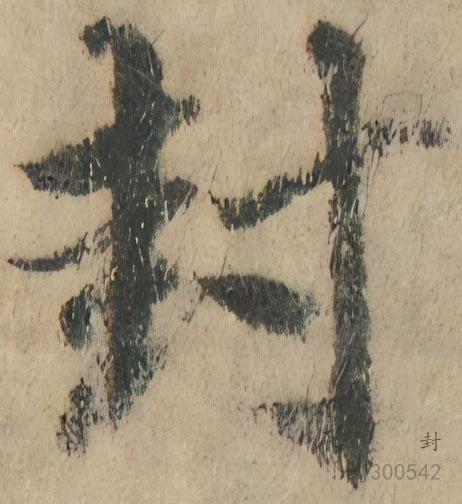 封
封
300542